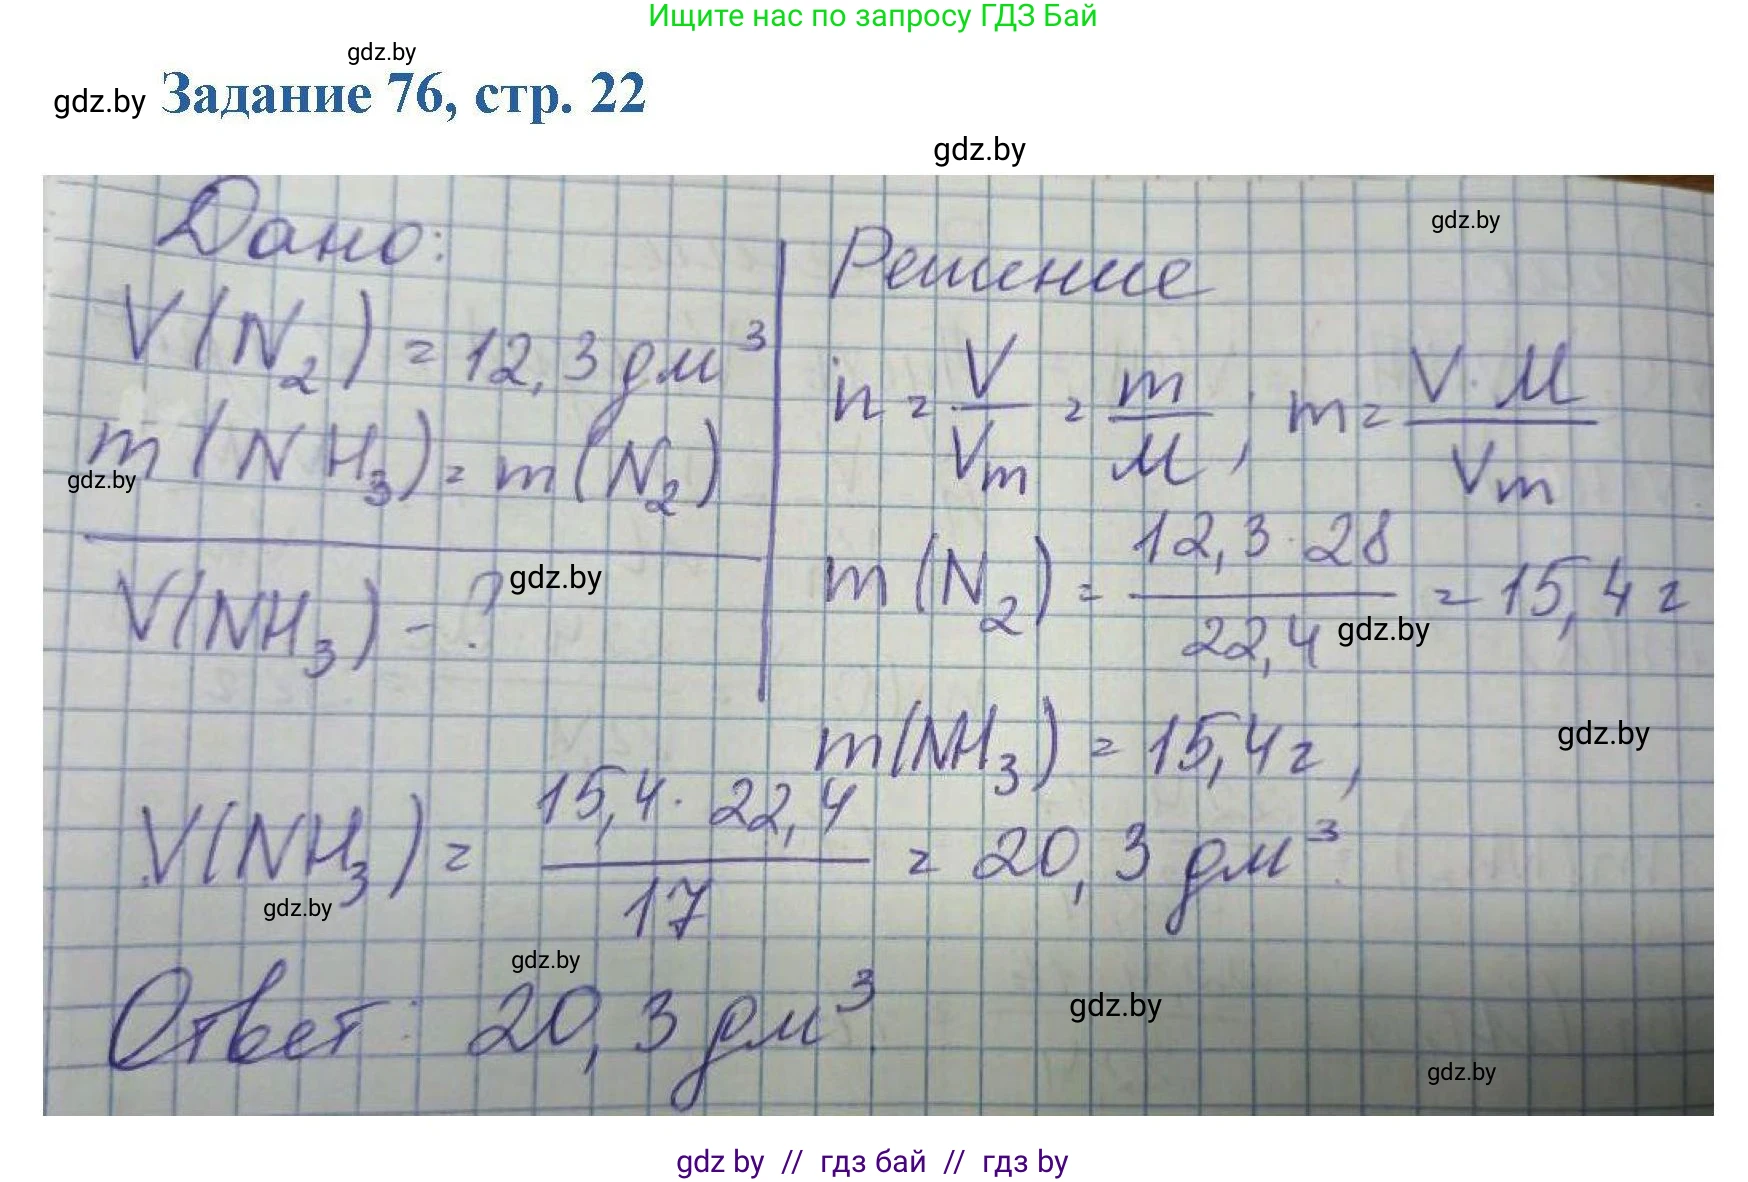 Ищите нас по запросу ГДЗ Бай
gdz.by
gdz.by Задание 76, стр. 22
gdz.by
gdz.by
Дано:
V(N₂) = 12,3 дм³
m(NH₃) = m(N₂)
gdz.by
V(NH₃) - ?
gdz.by
Решение
n = V/Vm = m/M; m = V·M/Vm
m(N₂) = 12,3·28/22,4 = 15,4 г
gdz.by
m(NH₃) = 15,4 г,
gdz.by
V(NH₃) = 15,4·22,4/17 = 20,3 дм³.
gdz.by
gdz.by
Ответ: 20,3 дм³.
gdz.by
gdz.by
gdz by // гдз бай // гдз by